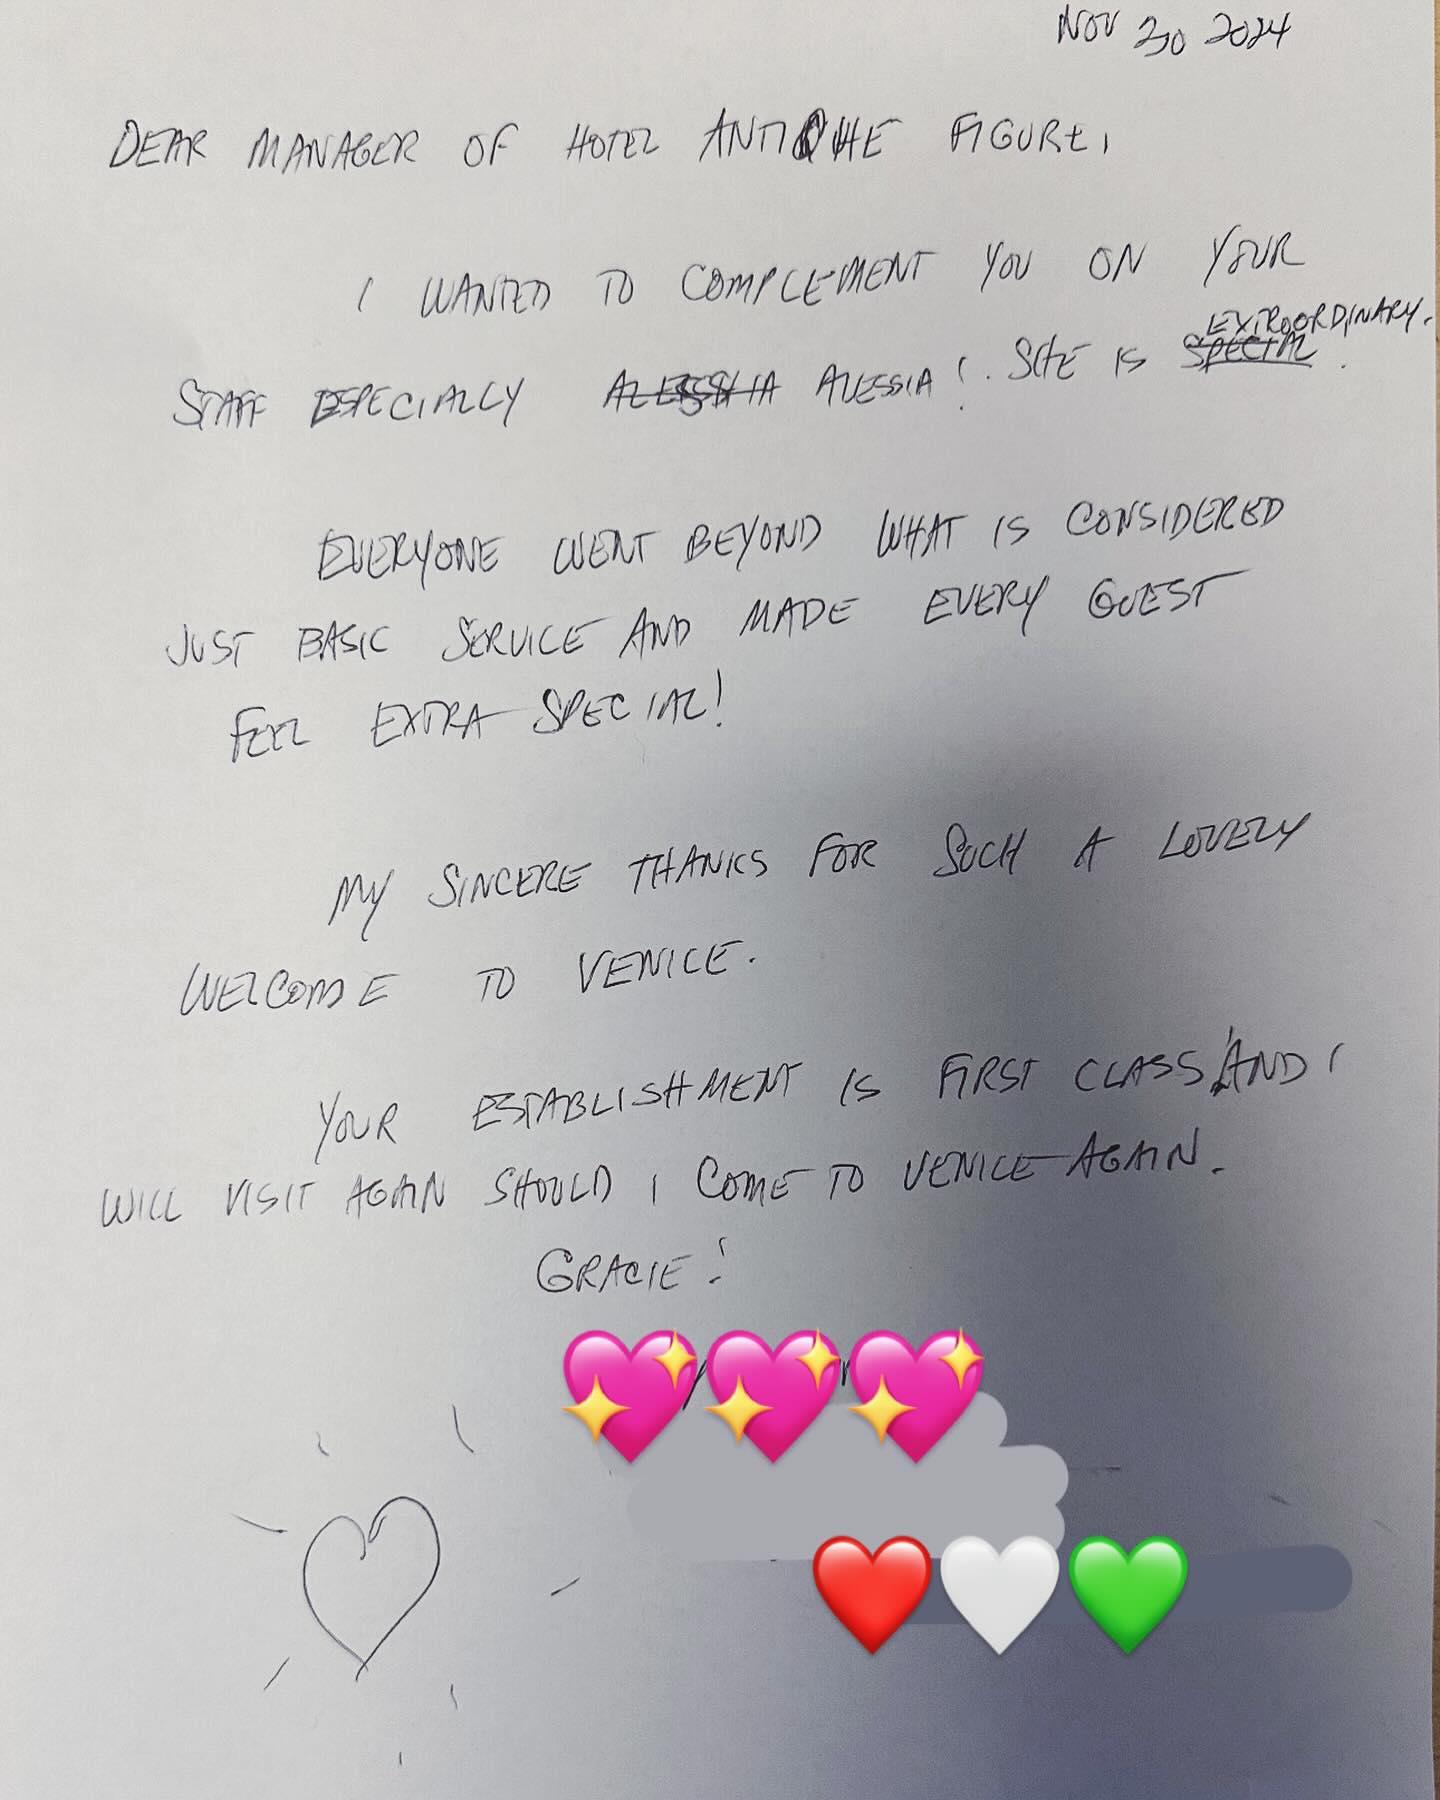 NOV 30 2024
DEAR MANAGER OF HOTEL ANTICHE FIGURE,
I WANTED TO COMPLEMENT YOU ON YOUR
EXTROORDINARY.
STAFF ESPECIALLY ALESSIA ALESSIA! SHE IS SPECIAL.
EVERYONE WENT BEYOND WHAT IS CONSIDERED
JUST BASIC SERVICE AND MADE EVERY GUEST
FEEL EXTRA SPECIAL!
MY SINCERE THANKS FOR SUCH A LOVELY
WELCOME TO VENICE.
YOUR ESTABLISHMENT IS FIRST CLASS AND I
WILL VISIT AGAIN SHOULD I COME TO VENICE AGAIN.
GRACIE!